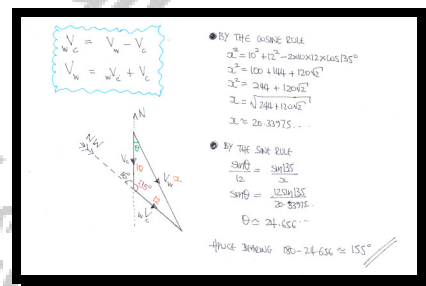 wVc = Vw - Vc
Vw = wVc + Vc
N
NW
θ
Vc
10
Vw
x
45°
135°
12
wVc
● BY THE COSINE RULE
x² = 10² + 12² - 2x10x12xcos135°
x² = 100 + 144 + 120√2
x² = 244 + 120√2
x = √244 + 120√2
x ≈ 20.33975...
● BY THE SINE RULE
sinθ/12 = sin135/x
sinθ = 12sin135/20.33975...
θ ≈ 24.656...
HENCE BEARING 180 - 24.656 ≈ 155°